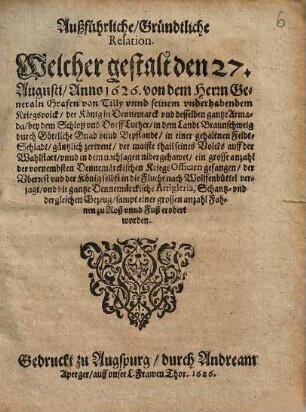 6
Außführliche/Gründtliche
Relation.
Welcher gestalt den 27.
Augusti/Anno 1626. von dem Herrn Ge-
neraln Grafen von Tilly vnnd seinem vnderhabendem
Kriegsvolck/der König in Dennemarck vnd desselben gantze Arma-
da/bey dem Schloß vnd Dorff Luther/in dem Landt Braunschweig
durch Göttliche Gnad vnnd Beystandt/in einer gehaltnen Feldt-
Schlacht/gäntzlich zertrent/der maiste theil seines Volcks auff der
Wahlstatt/vnnd in dem nachsagen nidergehawet/ein grosse anzahl
der vornembsten Dennemärckischen Kriegs Officirn gefangen/der
Vberrest vnd der König selbst in die Flucht nach Wolffenbüttel ver-
jagt/vnd die gantze Dennemärckische Artigleria, Schantz- vnd
dergleichen Gezeug/sampt einer grossen anzahl Fah-
nen zu Roß vnnd Fuß erobert
worden.
Gedruckt zu Augspurg/durch Andream
Aperger/auff vnser L. Frawen Thor. 1626.